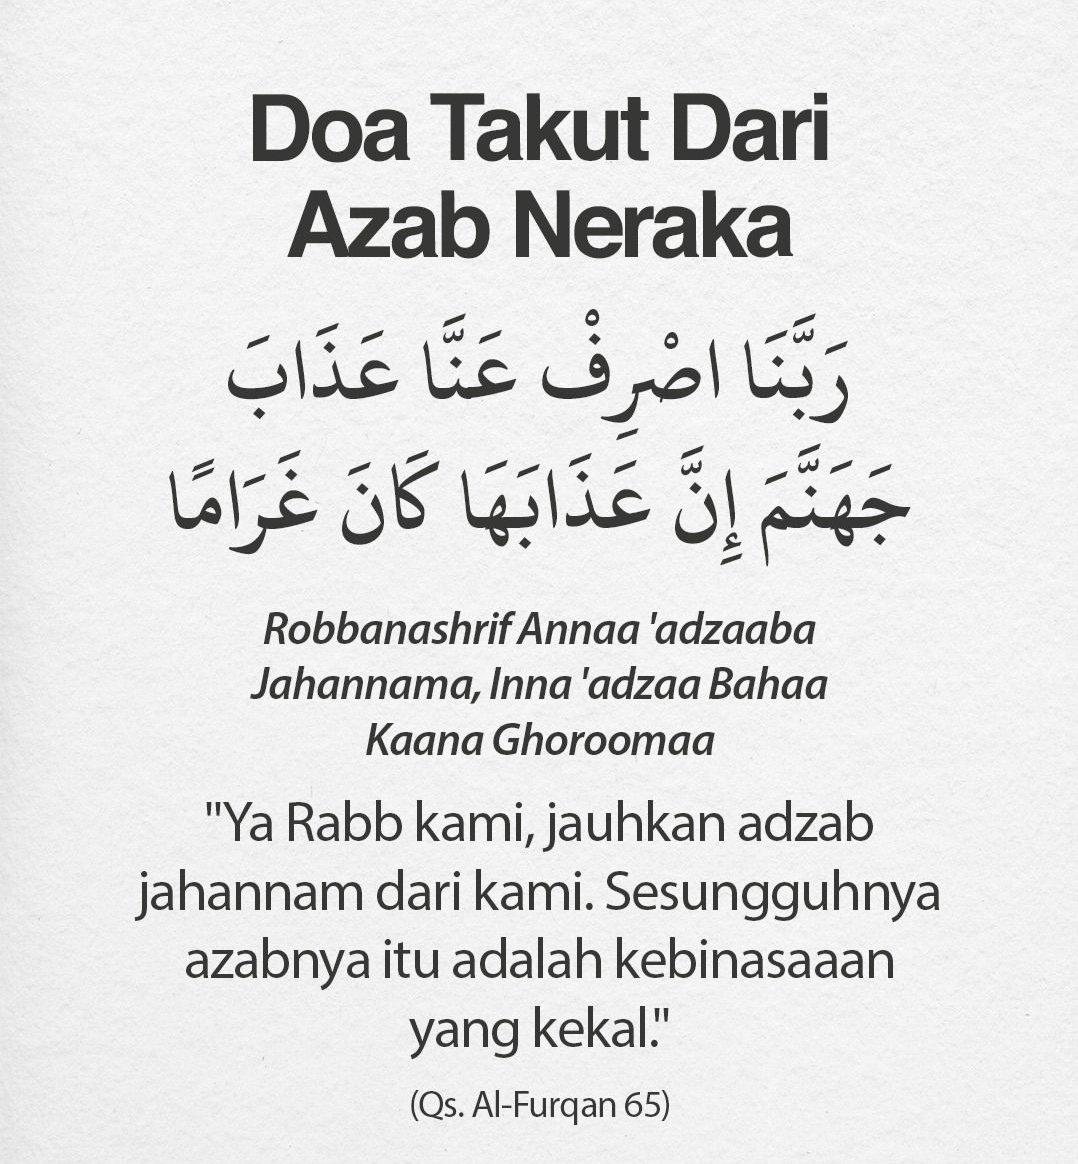 Doa Takut Dari
Azab Neraka
رَبَّنَا اصْرِفْ عَنَّا عَذَابَ
جَهَنَّمَ إِنَّ عَذَابَهَا كَانَ غَرَامًا
Robbanashrif Annaa 'adzaaba
Jahannama, Inna 'adzaa Bahaa
Kaana Ghoroomaa
"Ya Rabb kami, jauhkan adzab
jahannam dari kami. Sesungguhnya
azabnya itu adalah kebinasaaan
yang kekal."
(Qs. Al-Furqan 65)